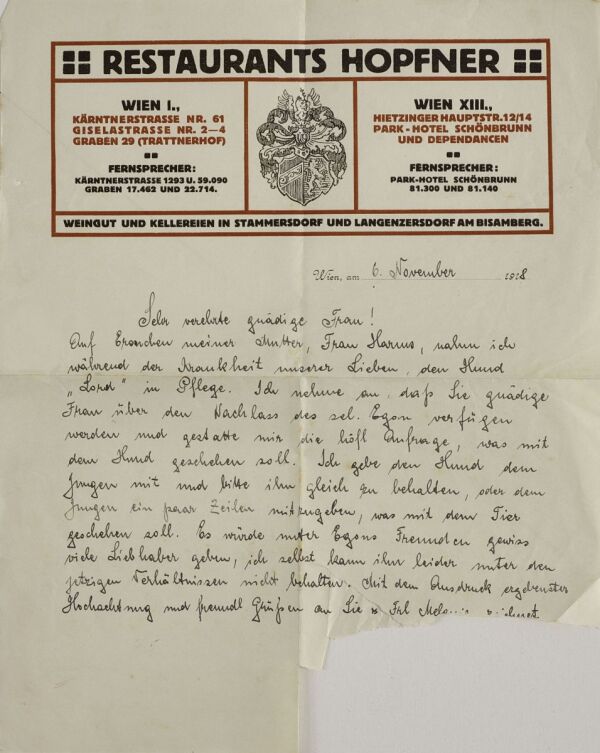 RESTAURANTS HOPFNER
WIEN I.,
KÄRNTNERSTRASSE NR. 61
GISELASTRASSE NR. 2-4
GRABEN 29 (TRATTNERHOF)
FERNSPRECHER:
KÄRNTNERSTRASSE 1293 U. 59.090
GRABEN 17.462 UND 22.714.
WIEN XIII.,
HIETZINGER HAUPTSTR. 12/14
PARK-HOTEL SCHÖNBRUNN
UND DEPENDANCEN
FERNSPRECHER:
PARK-HOTEL SCHÖNBRUNN
81.300 UND 81.140
WEINGUT UND KELLEREIEN IN STAMMERSDORF UND LANGENZERSDORF AM BISAMBERG.
Wien, am 6. November 1918
Sehr verehrte gnädige Frau!
Auf Ersuchen meiner Mutter, Frau Harms, nahm ich
während der Krankheit unserer Lieben, den Hund
„Lord" in Pflege. Ich nehme an, daß Sie gnädige
Frau über den Nachlass des sel. Egon verfügen
werden und gestatte mir die höfl Anfrage, was mit
dem Hund geschehen soll. Ich gebe den Hund dem
Jungen mit und bitte ihn gleich zu behalten, oder dem
Jungen ein paar Zeilen mitzugeben, was mit dem Tier
geschehen soll. Es würde unter Egons Freunden gewiss
viele Liebhaber geben, ich selbst kann ihn leider unter den
jetzigen Verhältnissen nicht behalten. Mit dem Ausdruck ergebenster
Hochachtung und freundl Grüßen an Sie u Frl